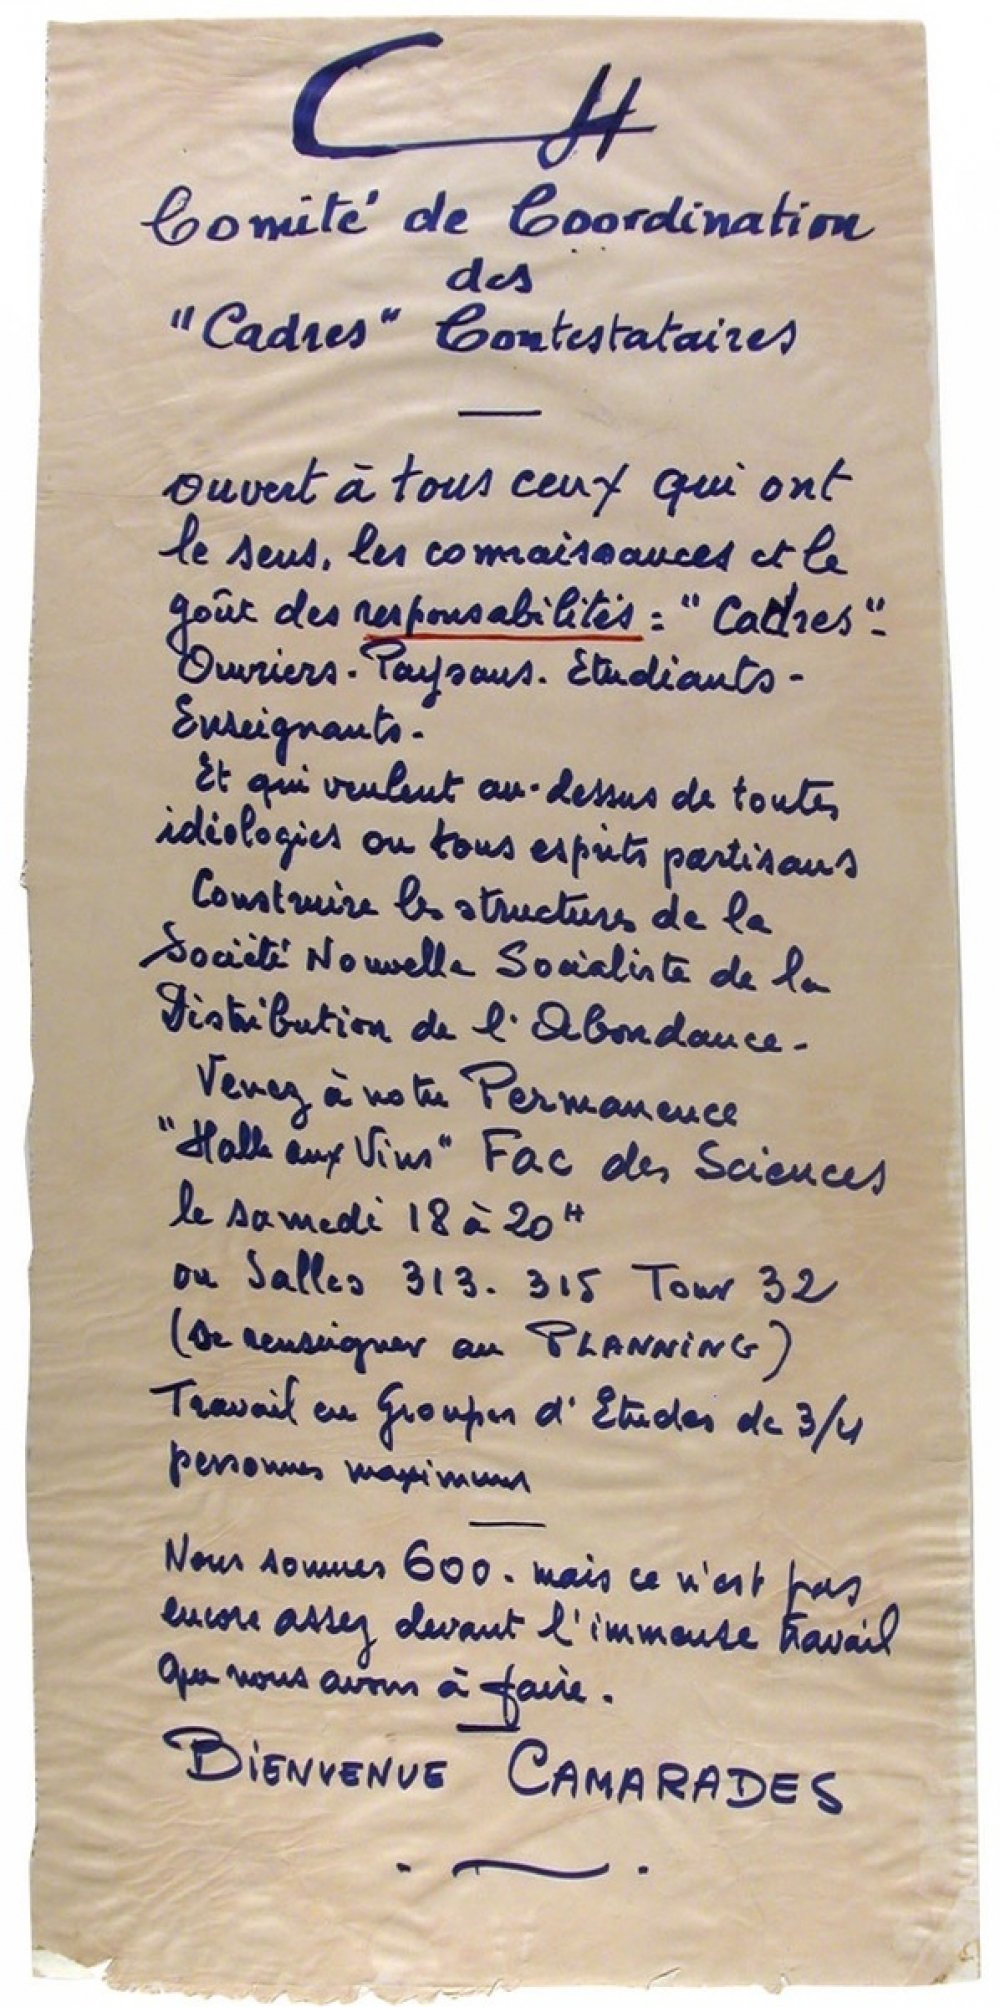 CH
Comité de Coordination
des
"Cadres" Contestataires
—
ouvert à tous ceux qui ont
le sens, les connaissances et le
goût des responsabilités = "Cadres" -
Ouvriers - Paysans. Etudiants -
Enseignants -
Et qui veulent au-dessus de toutes
idéologies ou tous esprits partisans
Construire les structures de la
Société Nouvelle Socialiste de la
Distribution de l'Abondance -
Venez à notre Permanence
"Halle aux Vins" Fac des Sciences
le samedi 18 à 20H
ou Salles 313. 315 Tour 32
(se renseigner au PLANNING)
Travail en Groupes d'Etudes de 3/4
personnes maximum
—
Nous sommes 600 - mais ce n'est pas
encore assez devant l'immense travail
que nous avons à faire.
BIENVENUE CAMARADES